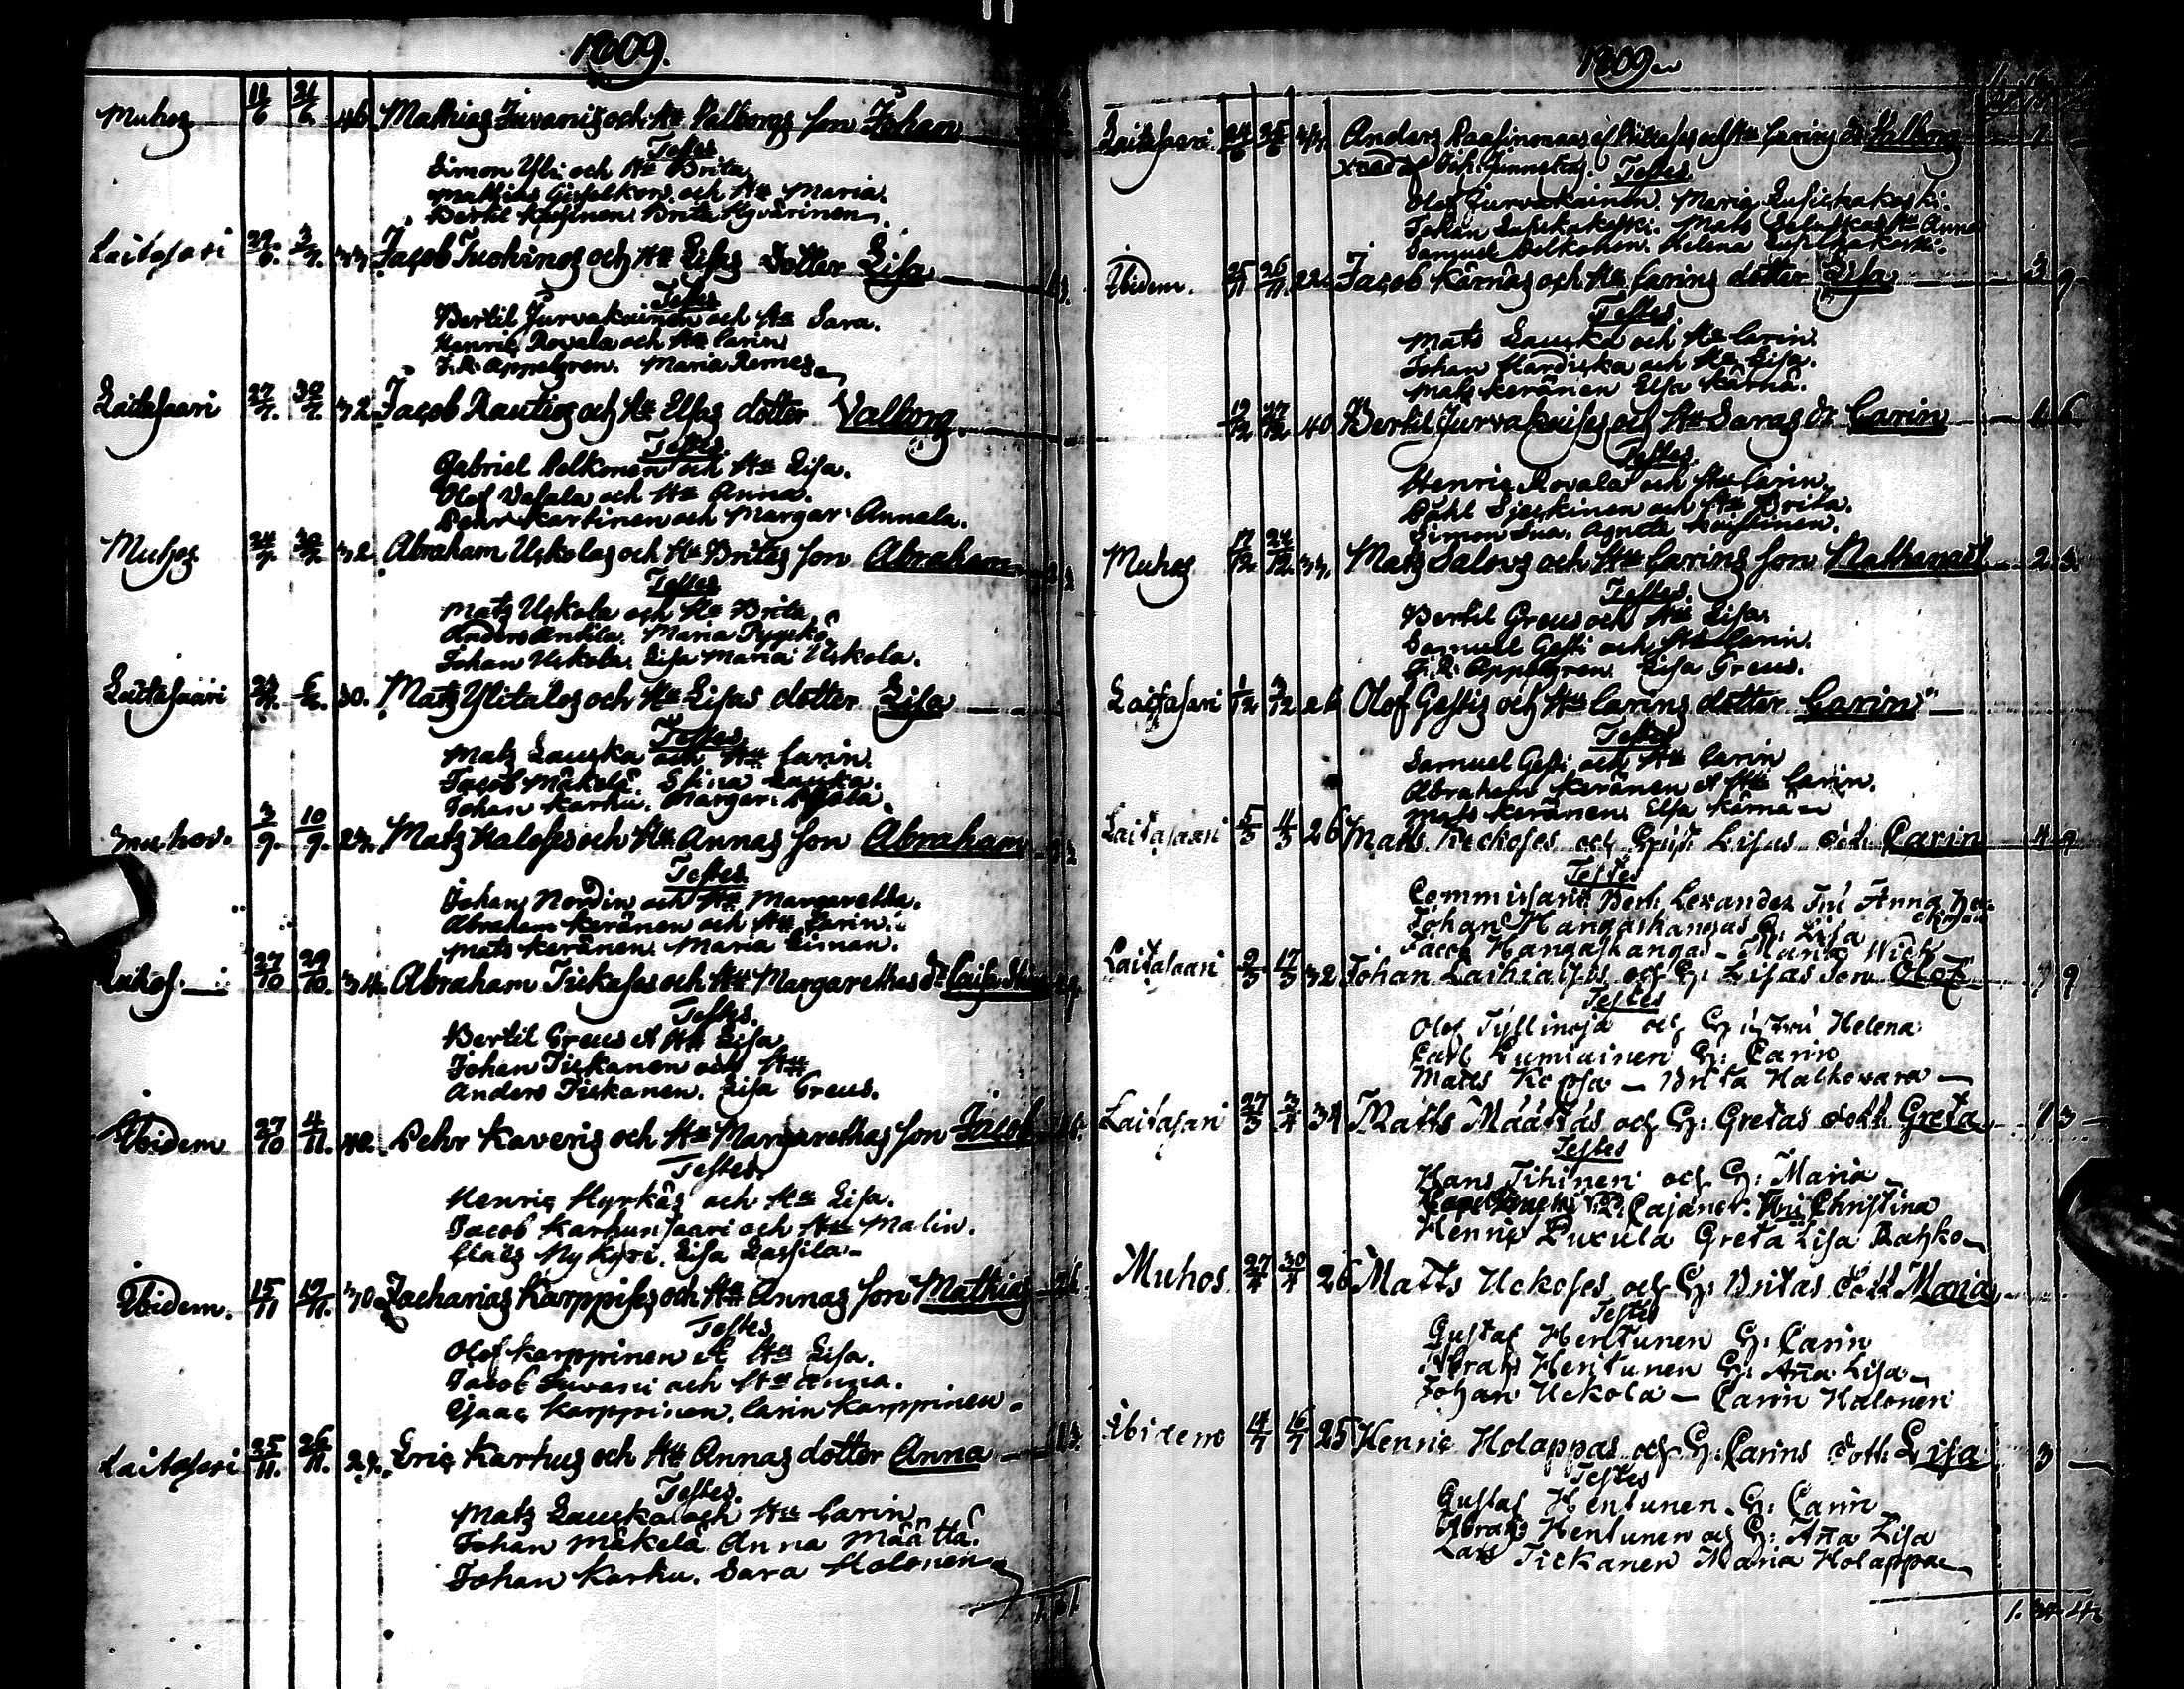 1809.
Muhos 11/6 21/6 46 Mathias Juvanis och H:u Valborgs son Johan
Testes
Simon Yli och H:u Brita
Mathias och H:u Maria.
Bertil Brita Hyvärinen
Laitasari 29/6 3/7 33 Jacob Tuohinos och H:u Lisas dotter Lisa
Testes
Bertil Jurvakainen och H:u Sara.
Henric Rovala och H:u Carin
J.R. Appelgren. Maria Remes
Laitasaari 27/7 30/7 32 Jacob Rautios och H:u Elsas dotter Valborg
Testes
Gabriel Pelkonen och H:u Lisa.
Olof Vasala och H:u Anna.
Pehr Kartinen och Margar: Annala.
Muhos 32 Abraham Uckolas och H:u Britas son Abraham
Testes
Matz Uckola och H:u Brita
Anders Anttila. Maria
Johan Uckola. Lisa Maria Uckola.
Laitasaari 30. Matz Ylitalos och H:u Lisas dotter Lisa
Testes
Matz Laucka och H:u Carin.
Jacob Mäkelä. Stina Laucka.
Johan Karhu. Margar:
Muhos. 3/9. 10/9. 23. Matz Halosses och H:u Annas son Abraham
Testes
Johan Nordin och H:u Margaretha.
Abraham Keränen och H:u Carin.
Mats Keränen. Maria Timan.
27/10 29/10. 34. Abraham Tickases och H:u Margarethas d:r Caisa Stina
Testes.
Bertil Greus et H:u Lisa
Johan Tickanen och H:u
Anders Tickanen. Lisa Greus.
Ibidem 27/10 4/11. 40. Pehr Kaveris och H:u Margarethas son Jacob
Testes.
Henric Hyrkäs och H:u Lisa.
Jacob Karhunsaari och H:u Malin.
Claës Nykyri. Lisa Lassila
Ibidem. 15/11 19/11. 30. Zacharias Karppises och H:u Annas son Mathias
Testes
Olof Karppinen et H:u Lisa.
Jacob Juvani och H:u Anna.
Isaac Karppinen. Carin Karppinen
Laitasari 25/11. 26/11. 29. Eric Karhus och H:u Annas dotter Anna
Testes.
Matz Laucka och H:u Carin
Johan Mäkelä Anna Määttä.
Johan Karhu. Sara Halonen
1809
Laitasaari. Anders och H:u Carins d:r Valborg
Testes
Olof Jurvakainen. Maria
Johan Mats H:u Anna
Samuel Pelkonen. Helena
Ibidem. 25/11 26/11. 22. Jacob Kärnäs och H:u Carins dotter Lisa
Testes.
Mats Laucka och H:u Carin.
Johan Hardicka och H:u Lisa.
Matz Keränen Elsa Kärnä.
12/12 27/12 40 Bertil Jurvakaises och H:u Saras d:r Carin
Testes.
Henric Rovala och H:u Carin
Påhl och H:u Brita.
Simon Sua. Agneta
Muhos 17/12 24/12 33. Matz Salovs och H:u Carins son Nathanaël
Testes.
Bertil Greus och H:u Lisa.
Samuel Gesti och H:u Carin.
J.R. Appelgren. Lisa Greus.
Laitasari 1/12 3/12 26 Olof Gestis och H:u Carins dotter Carin
Testes
Samuel Gesti och H:u Carin
Abraham Keränen et H:u Carin.
Mats Keränen. Elsa Kärnä
Laitasaari 5/3 26 Matts Keckoses och Hust. Lisas dott. Carin
Testes
Commissarie Bert: Lexander Fru Anna
Johan Hangaskangas H: Lisa
Jacob Hangaskangas - Maria
Laitasaari 9/3 17/3 32 Johan Laihiaises och H: Lisas son Olof
Testes
Olof Tyllinoja och Hustru Helena
Carl Lumiainen H: Carin
Matts Koppa - Brita Halkovara
Laitasari 27/3 3/4 34 Matts Määttäs och H: Gretas dott: Greta
Testes
Hans Tihinen och H: Maria
Cajaner. Fru Christina
Henric Puxula Greta Lisa Ratzko
Muhos 27/4 30/4 26 Matts Uckoses och H: Britas dott Maria
Testes
Gustaf Henttunen H: Carin
Abrah Henttunen H: Aña Lisa
Johan Uckola - Carin Halonen
Ibidem 14/7 16/7 25 Henric Holappas och H: Carins dott: Lisa
Testes
Gustaf Henttunen H: Carin
Abrah Henttunen och H: Aña Lisa
Lars Tickanen Maria Holappa